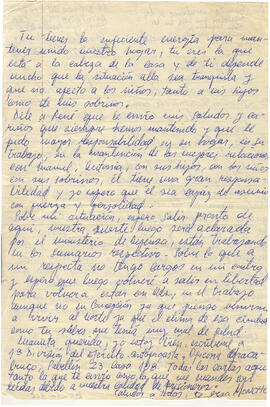 Tu tienes la suficiente energía para man-
tener unido nuestro hogar, tu eres la que
está a la cabeza de la casa y de ti depende
mucho que la situación allá sea tranquila y
que no afecte a los niños, tanto a tus hijos
como de tus sobrinos.
Dile a René que le envío muy saludos y ca-
riños que siempre hemos mantenido y que le
pido mayor responsabilidad en su hogar, en su
trabajo, en la mantención de las mejores relaciones
con Manuel, Victoria, con sus hijos, con los niños
con sus sobrinos, el tiene una gran responsa-
bilidad y yo espero que el sea capaz de asumir
con fuerza y
Sobre mi situación, espero salir pronto de
aquí, nuestra suerte luego será aclarada
por el ministerio de defensa, están trabajando
en los sumarios respectivos. Sobre lo que a
mi respecta no tengo cargos en mi contra
y espero que luego volveré a salir en libertad
para volver a estar en Uds, en el trabajo
aunque no en que pienso
a vivir al ya que el clima de esa
como tu sabes que tenía muy mal de salud.
Mamita querida, yo estoy bien, escríbeme a
1ª División del Ejército Antofagasta, Oficina
Pabellón 23 casa 108. Todas las cartas aquí
tanto la que te envío como la que me mandes son
leídas debido a nuestra calidad de prisioneros.
Saludos a todos,